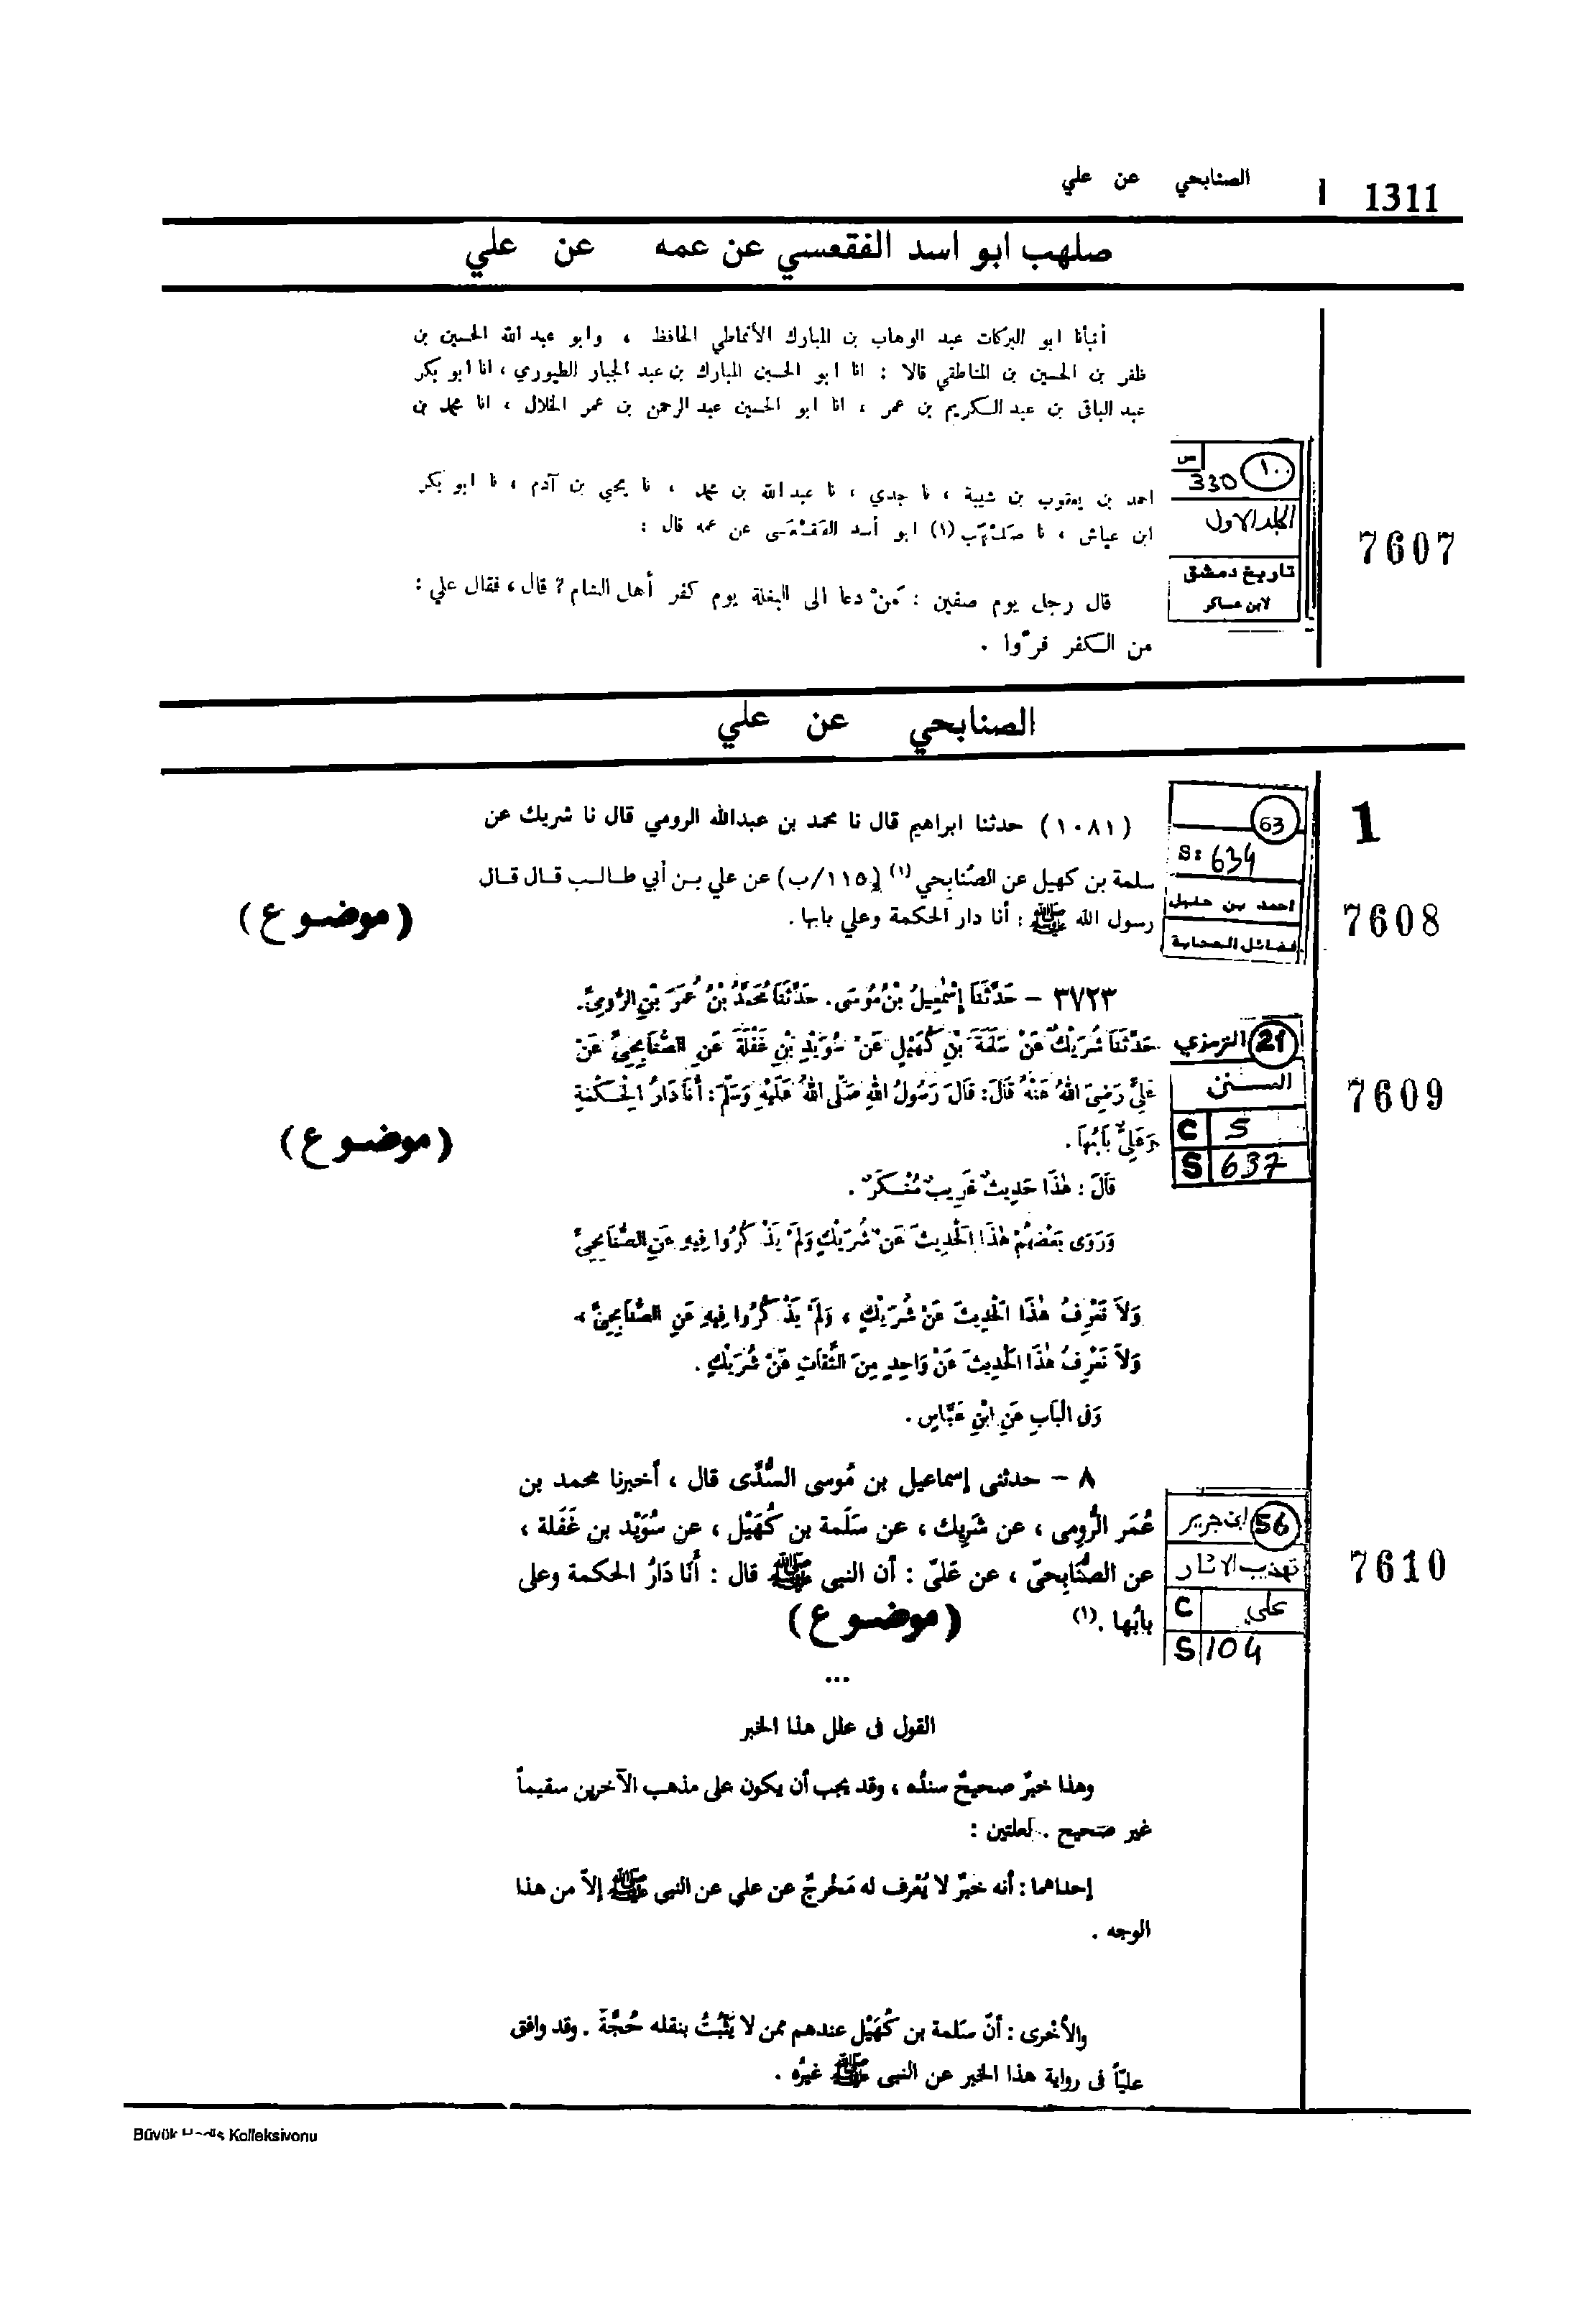 1311 | الصنابحي عن علي
صلهب ابو اسد الفقعسي عن عمه عن علي
أنبأنا ابو البركات عبد الوهاب بن المبارك الأنماطي الحافظ ، وابو عبد الله الحسين بن
ظفر بن الحسين بن المناطقي قالا : انا ابو الحسين المبارك بن عبد الجبار الطيوري ، انا ابو بكر
عبد الباقي بن عبد الكريم بن عمر ، انا ابو الحسين عبد الرحمن بن عمر الخلال ، انا محمد بن
احمد بن يعقوب بن شيبة ، نا جدي ، نا عبد الله بن محمد ، نا يحيى بن آدم ، نا ابو بكر
ابن عياش ، نا صَلْهَب (١) ابو أسد الفَقْعَسي عن عمه قال :
قال رجل يوم صفين : مَنْ دعا الى البغلة يوم كفر أهل الشام ? قال ، فقال علي :
من الكفر فرّوا .
س
١٠٠
330
المجلد الاول
تاريخ دمشق
لابن عساكر
7607
الصنابحي عن علي
1
(١٠٨١) حدثنا ابراهيم قال نا محمد بن عبدالله الرومي قال نا شريك عن
سلمة بن كهيل عن الصُنابحي (١) (١١٥/ب) عن علي بـن أبي طـالـب قـال قـال
رسول الله ﷺ : أنا دار الحكمة وعلي بابها .
(موضوع)
63
S: 634
احمد بن حنبل
فضائل الصحابة
7608
٣٧٢٣ - حَدَّثَنَا إِسْمٰعِيلُ بْنُ مُوسَى. حَدَّثَنَا مُحَمَّدُ بْنُ عُمَرَ بْنِ الرُّومِيِّ.
حَدَّثَنَا شَرِيْكٌ عَنْ سَلَمَةَ بْنِ كُهَيْلٍ عَنْ سُوَيْدِ بْنِ غَفْلَةَ عَنِ الصُّنَابِحِيِّ عَنْ
عَلِيٍّ رَضِيَ اللهُ عَنْهُ قَالَ: قَالَ رَسُولُ اللهِ صَلَّى اللهُ عَلَيْهِ وَسَلَّمَ: أَنَا دَارُ الْحِكْمَةِ
وَعَلِيٌّ بَابُهَا.
(موضوع)
21 الترمذي
السنن
C 5
S 637
7609
قَالَ : هٰذَا حَدِيثٌ غَرِيبٌ مُنْكَرٌ .
وَرَوَى بَعْضُهُمْ هٰذَا الْحَدِيثَ عَنْ شُرَيْكٍ وَلَمْ يَذْكُرُوا فِيهِ عَنِ الصُّنَابِحِيِّ
وَلَا نَعْرِفُ هٰذَا الْحَدِيثَ عَنْ شُرَيْكٍ ، وَلَمْ يَذْكُرُوا فِيهِ عَنِ الصُّنَابِحِيِّ ،
وَلَا نَعْرِفُ هٰذَا الْحَدِيثَ عَنْ وَاحِدٍ مِنَ الثِّقَاتِ عَنْ شُرَيْكٍ .
وَفِي الْبَابِ عَنِ ابْنِ عَبَّاسٍ .
٨ - حدثنى إسماعيل بن مُوسى السُّدِّى قال ، أخبرنا محمد بن
عُمَر الرُّومى ، عن شَرِيك ، عن سَلَمة بن كُهَيْل ، عن سُوَيْد بن غَفَلة ،
عن الصُّنَابِحىّ ، عن عَلىّ : أن النبى ﷺ قال : أَنَا دَارُ الحكمة وعلى
بابُها .(١) (موضوع)
56 ابن جرير
تهذيب الاثار
C علي
S 104
7610
...
القول فى علل هذا الخبر
وهذا خبرٌ صحيحٌ سندُه ، وقد يجب أن يكون على مذهب الآخرين سقيماً
غير صَحيح . لعلتين :
إحداهما : أنه خبرٌ لا يُعْرف له مَخْرجٌ عن علي عن النبى ﷺ إلاّ من هذا
الوجه .
والأُخْرى : أنّ سَلمة بن كُهَيْل عندهم ممن لا يَثْبُتُ بنقله حُجَّةٌ . وقد وافق
عليّاً فى رواية هذا الخبر عن النبى ﷺ غيرُه .
Büyük Hadis Kolleksivonu